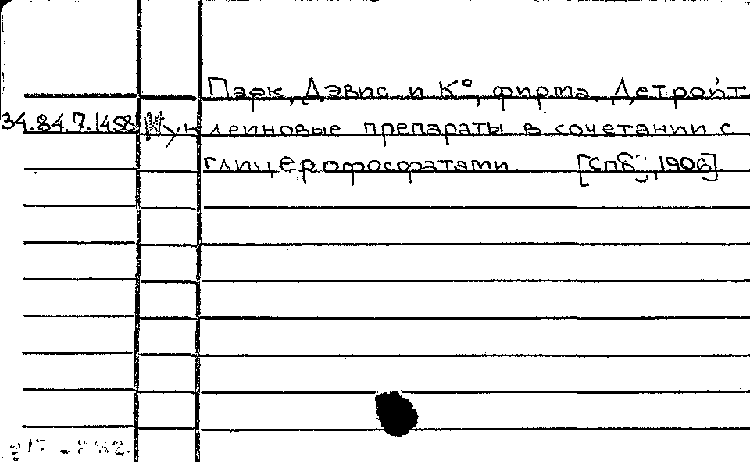 Парк, Дэвис и К°, фирма, Детройт
34.84.7.1458 Нуклеиновые препараты в сочетании с
глицерофосфатами [СПб., 1906].